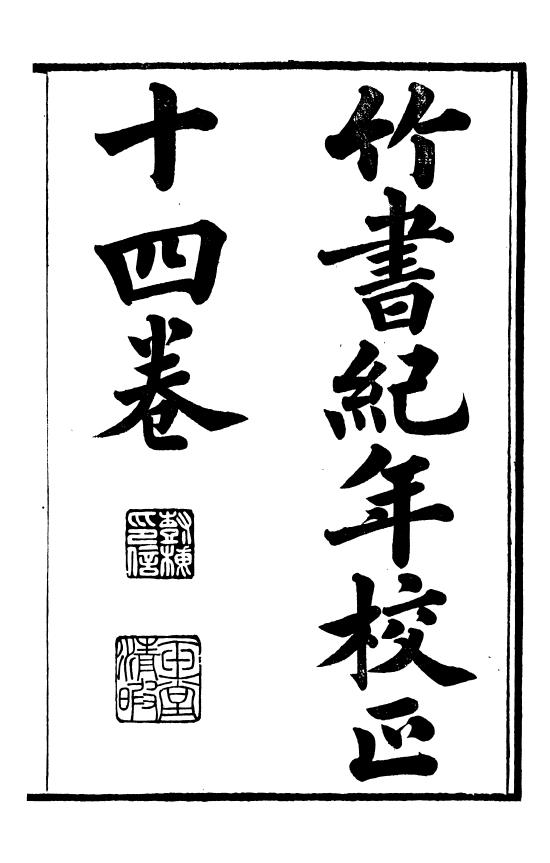 竹書紀年校正
十四卷